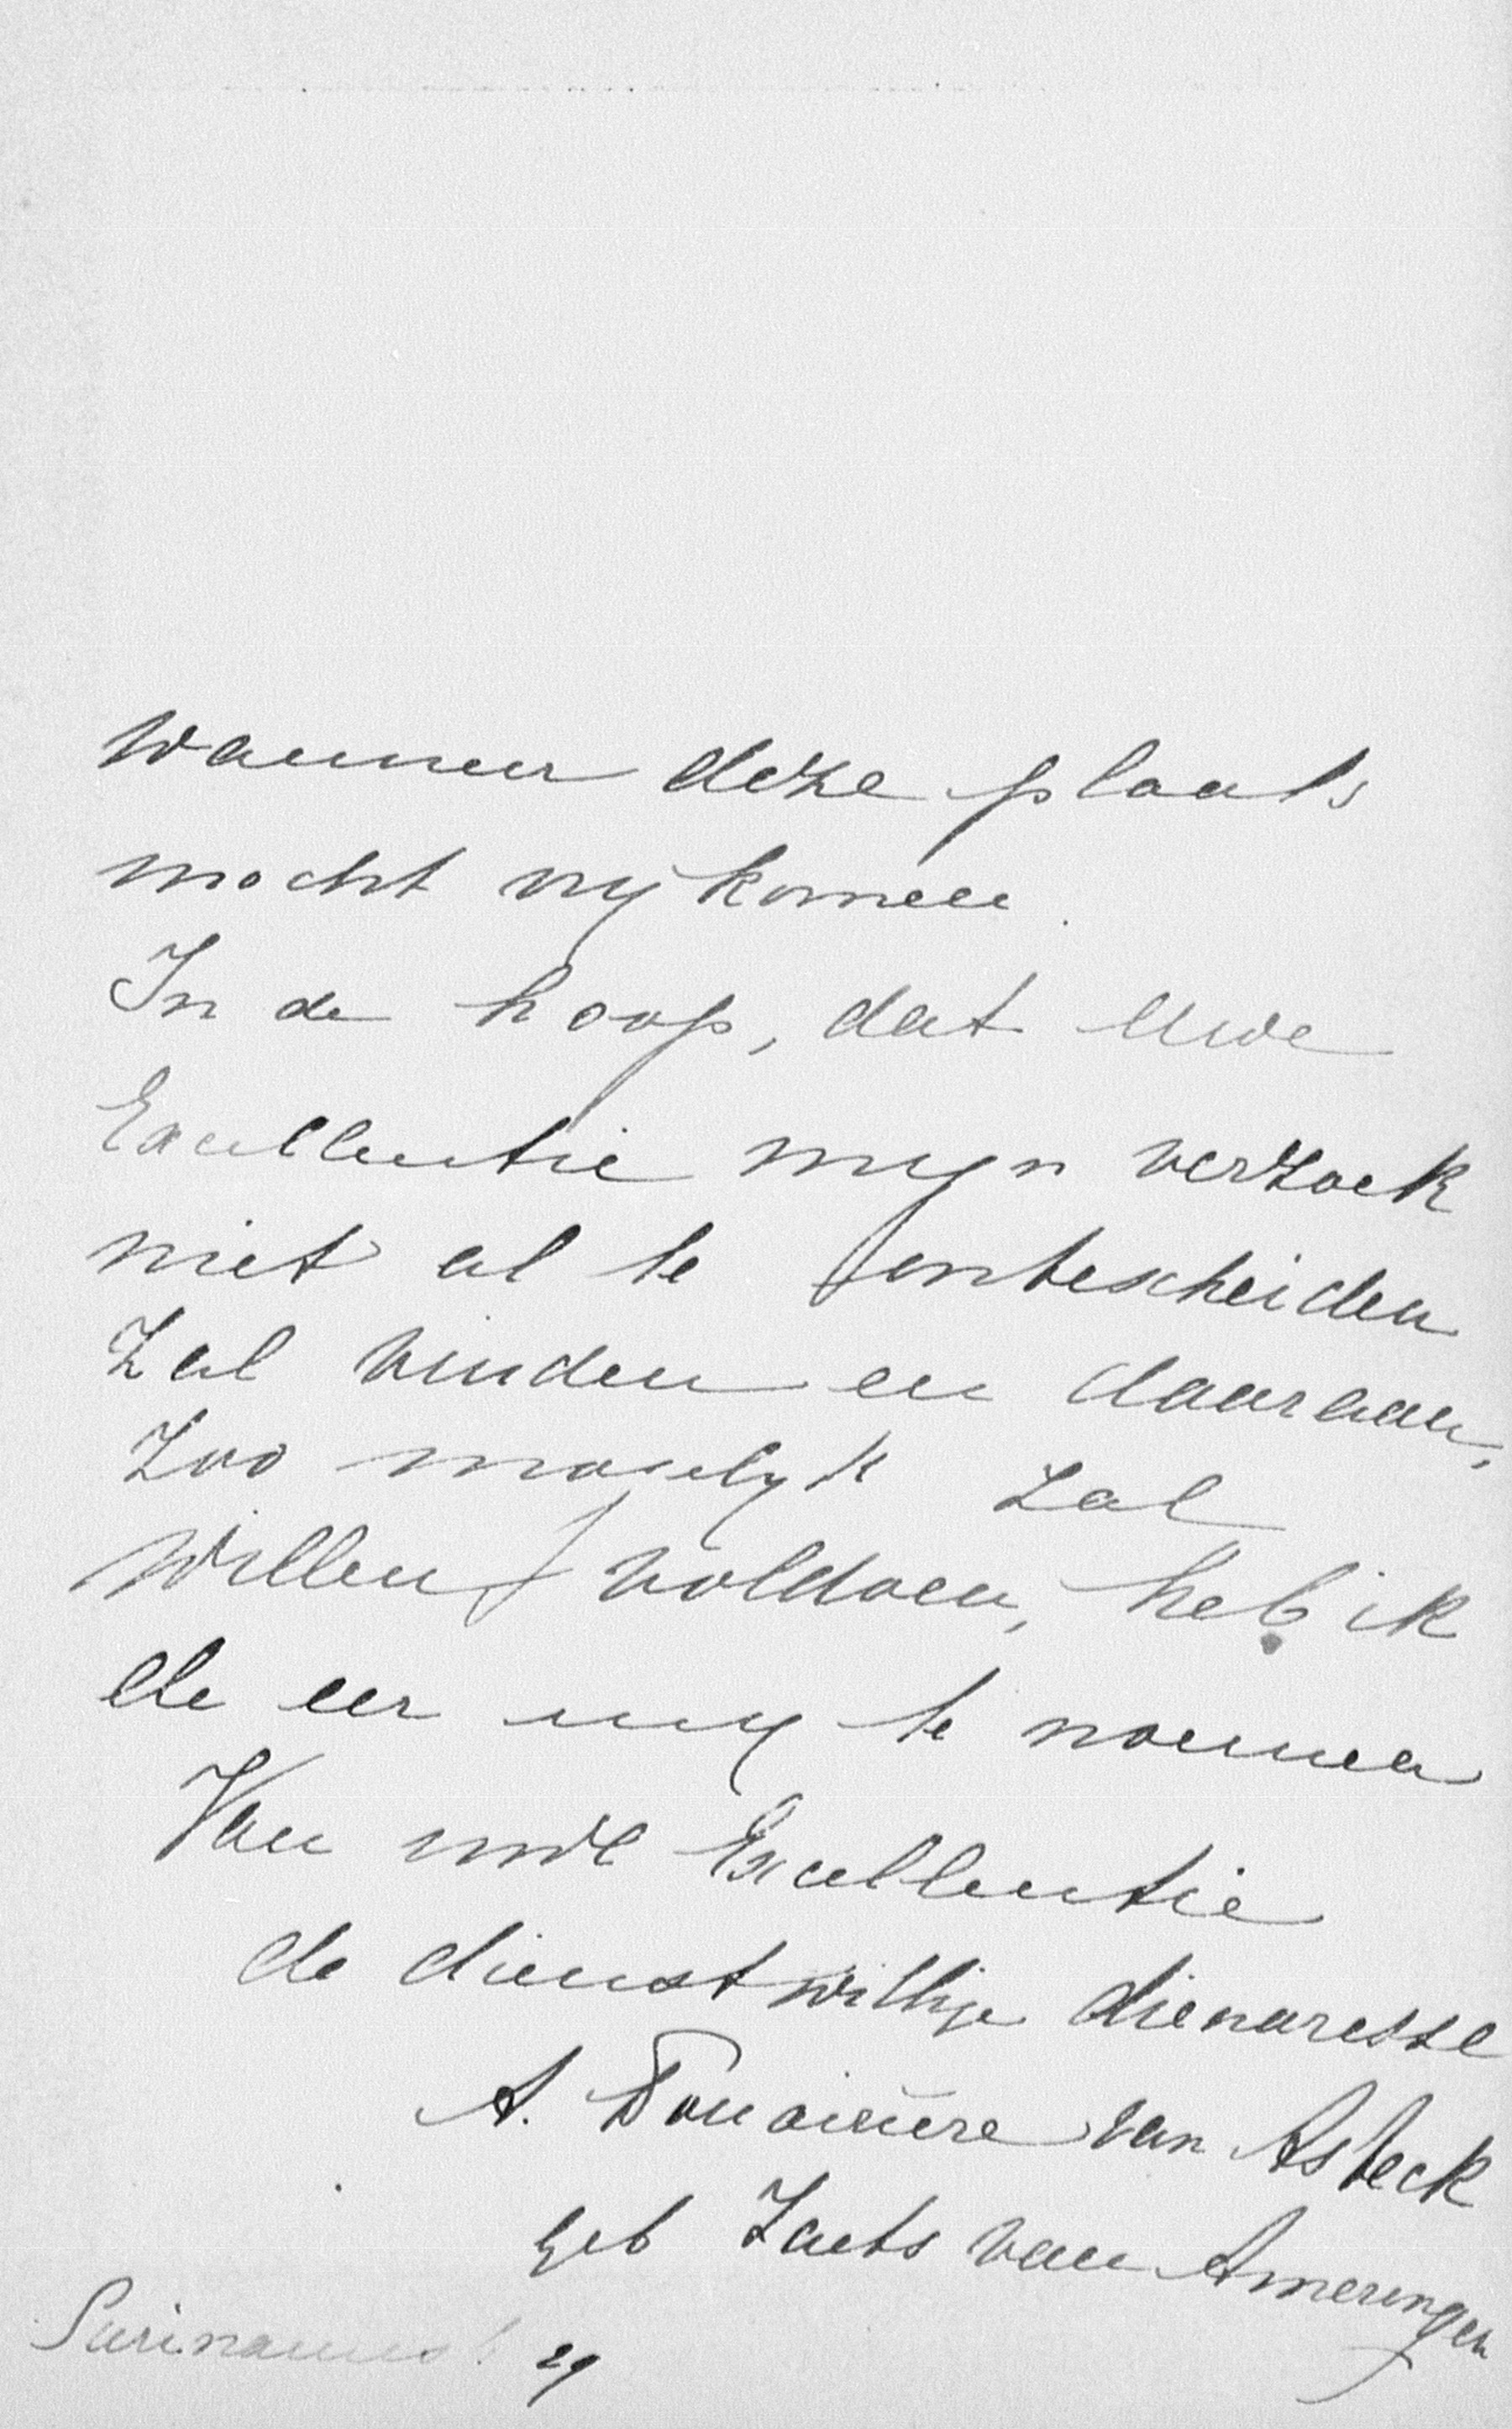 wanneer deze plaats
mocht vrij komen.
In de hoop, dat Uwe
Excellentie mijn verzoek
niet al te onbescheiden
zal vinden en daaraan,
zoo mogelijk zal
willen voldoen, heb ik
de eer mij te noemen
Van uwe Excellentie
de dienstwillige dienaresse
A. Douairière van Asbeck
geb van Ameringen
29